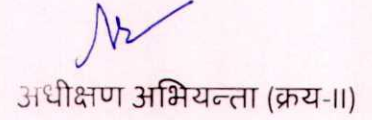 अधीक्षण अभियन्ता (क्रय-II)